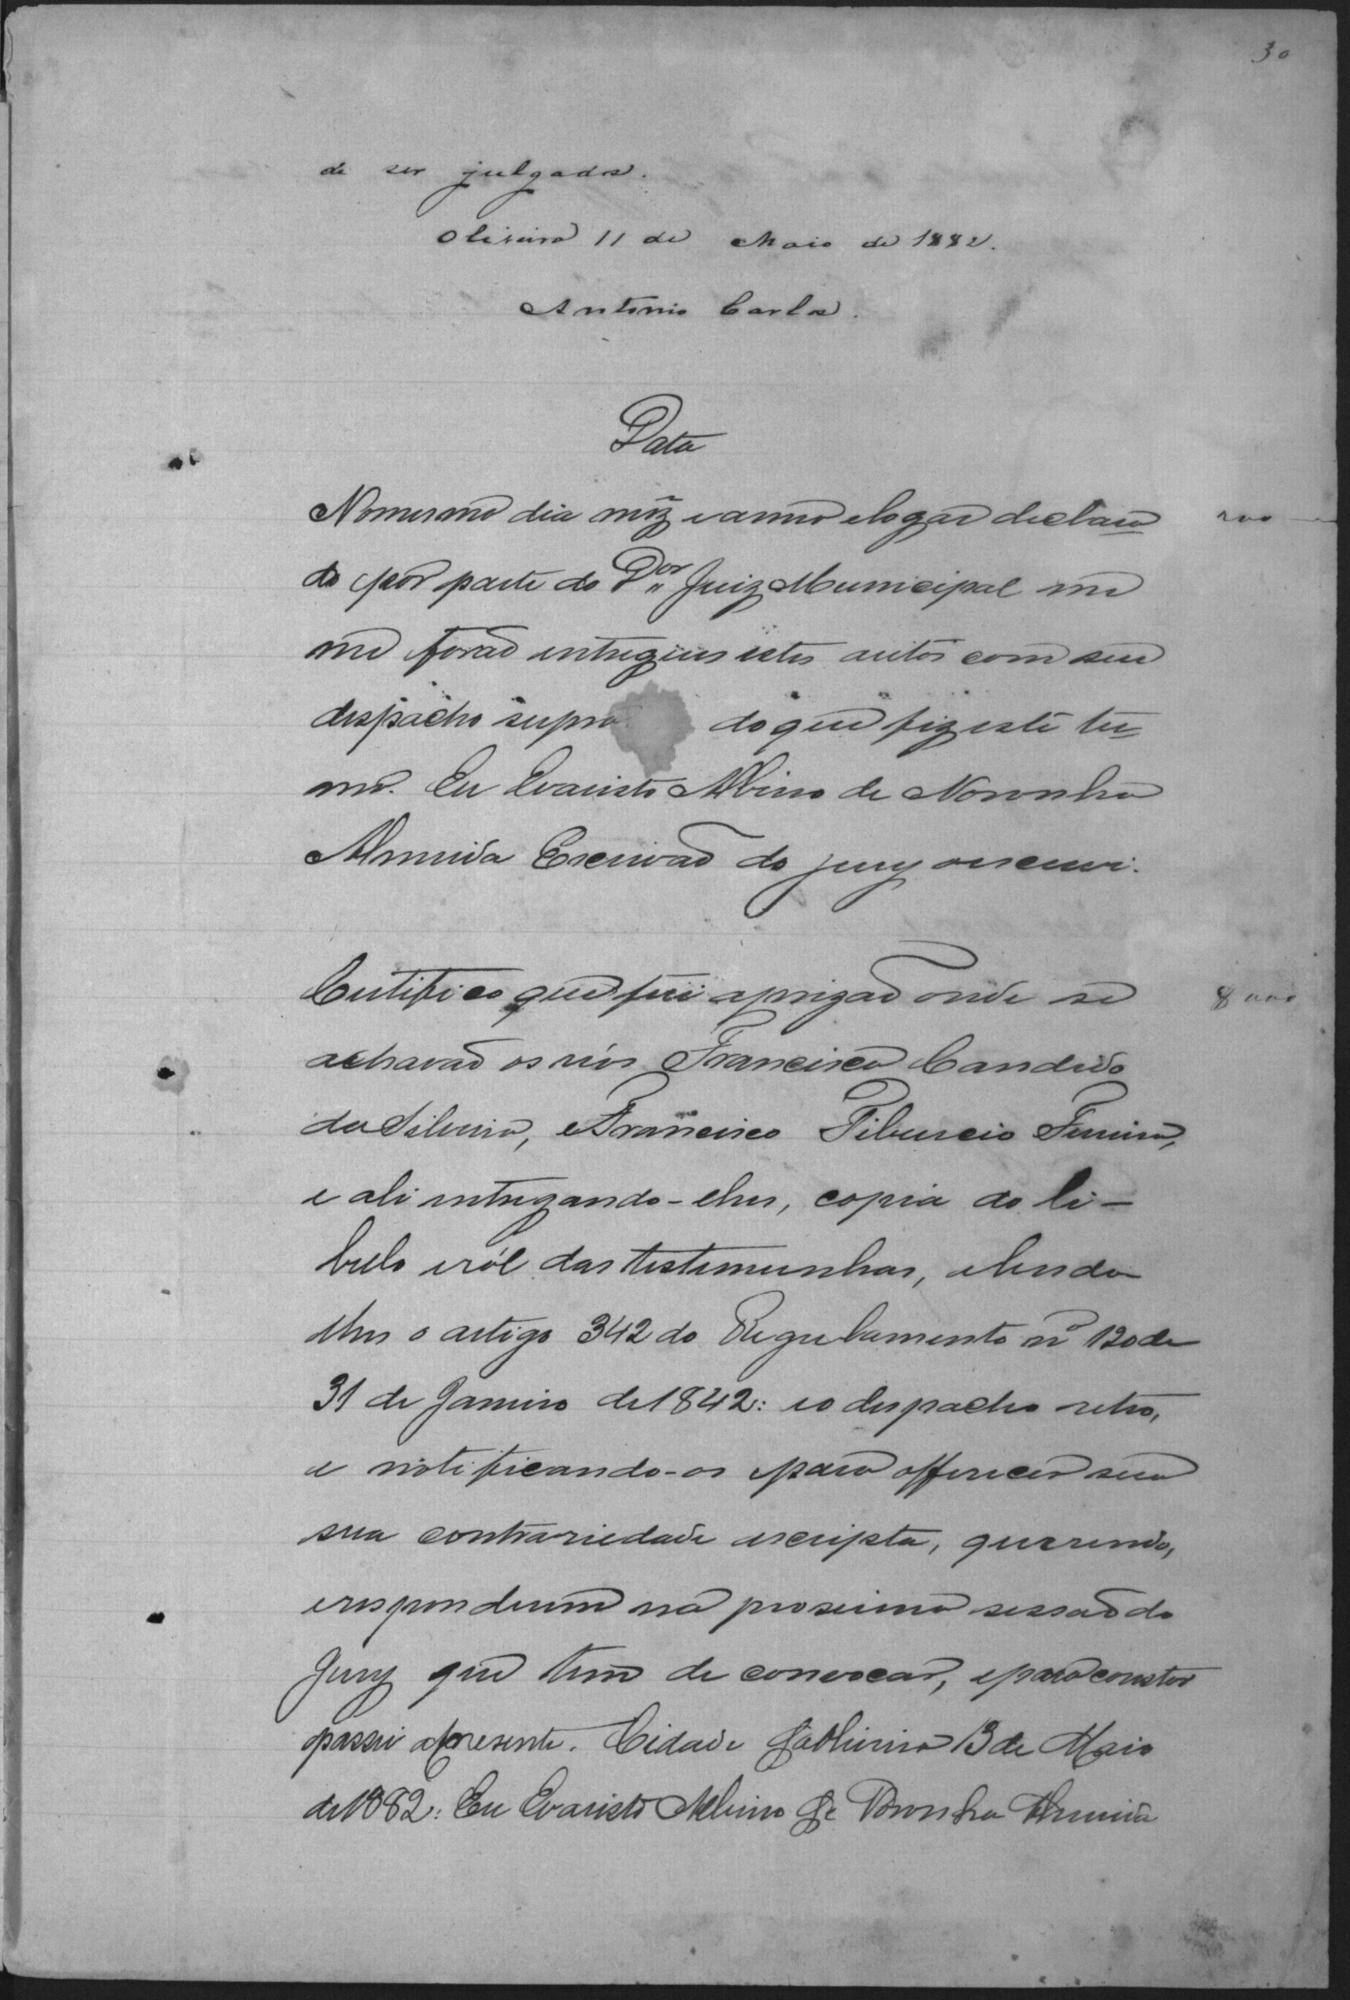 30
de ser julgados.
Oliveira 11 de Maio de 1882.
Antonio Carlos.
Data
No mesmo dia mêz e anno e logar declara
do por parte do Dor Juiz Municipal me
me forão entregues estes autos com seu
despacho supra do que fiz este ter
mo. Eu Evaristo Albino de Noronha
Almeida Escrivão do jury o escrevi.
Certifico que fui a prizão onde se
achavão os réos Francisco Candido
da Silveira, e Francisco Tiburcio Ferreira,
e ali entregando-lhes, copia do li-
bello e ról das testemunhas, e lendo
lhes o artigo 342 do Regulamento nº 120 de
31 de Janeiro de 1842: e o despacho retro,
e notificando-os para offerecer sua
sua contrariedade escripta, querendo,
e responderem na proxima sessão do
Jury que tem de convocar, e para constar
passei a presente. Cidade d'Oliveira 13 de Maio
de 1882: Eu Evaristo Albino de Noronha Almeida